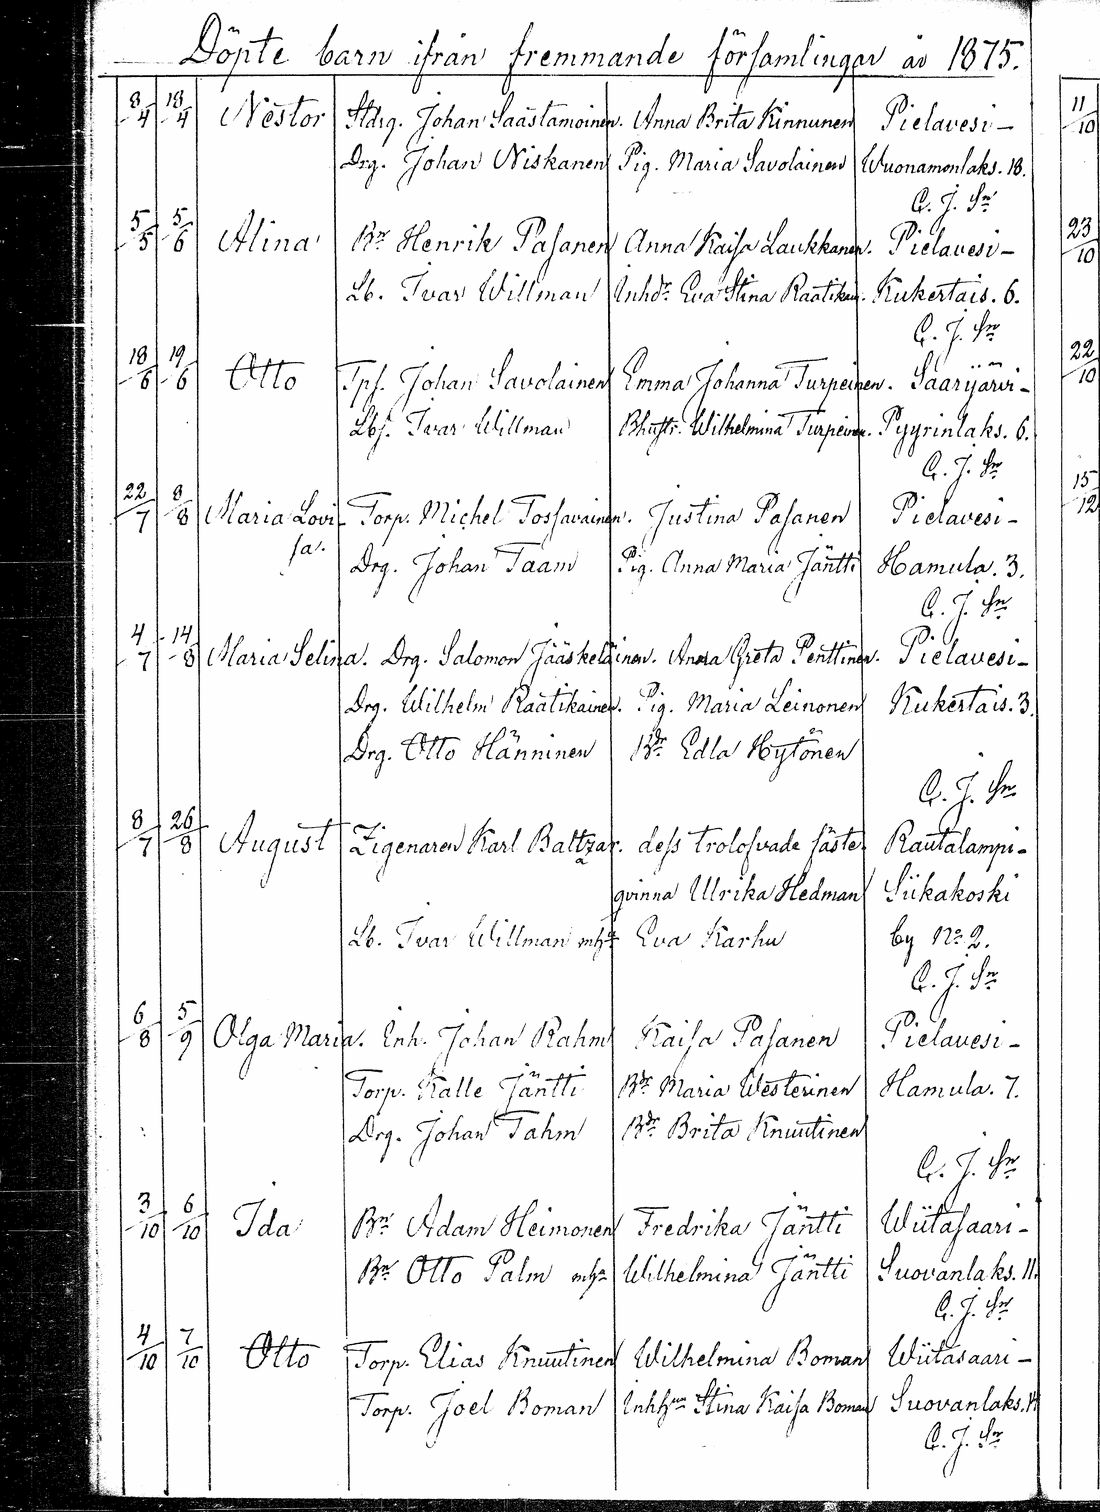 Döpte barn ifrån fremmande församlingar år 1875.
8/4 18/4 Nestor Stdrg. Johan Saastamoinen. Anna Brita Kinnunen Pielavesi-
Drg. Johan Niskanen Pig. Maria Savolainen Wuonamonlaks. 18.
C. J. Sn
5/5 5/6 Alina Bn Henrik Pasanen Anna Kaisa Laukkanen. Pielavesi-
Lb. Ivar Willman Inhdr Eva Stina Raatikain. Kukertais. 6.
C. J. Sn
18/6 19/6 Otto Tpf. Johan Savolainen Emma Johanna Turpeinen. Saarijärvi-
Lbf. Ivar Willman Bhustr. Wilhelmina Turpeinen. Pyyrinlaks. 6.
C. J. Sn
22/7 8/8 Maria Lovi- Torp. Michel Tossavainen. Justina Pasanen Pielavesi-
sa. Drg. Johan Taam Pig. Anna Maria Jäntti Hamula. 3.
C. J. Sn
4/7 14/8 Maria Selina. Drg. Salomon Jääskeläinen. Anna Greta Penttinen. Pielavesi-
Drg. Wilhelm Raatikainen. Pig. Maria Leinonen Kukertais. 3.
Drg. Otto Hänninen Bdr Edla Hytönen
C. J. Sn
8/7 26/8 August Zigenaren Karl Baltzar. dess trolofvade fäste- Rautalampi-
qvinna Ulrika Hedman Siikakoski
Lb. Ivar Willman mha Eva Karhu by No 2.
C. J. Sn
6/8 5/9 Olga Maria. Enh. Johan Rahm Kaisa Pasanen Pielavesi-
Torp. Kalle Jäntti Bdr Maria Westerinen Hamula. 7.
Drg. Johan Tahm Bdr Brita Knuutinen
C. J. Sn
3/10 6/10 Ida Bn Adam Heimonen Fredrika Jäntti Wiitasaari-
Bn Otto Palm mha Wilhelmina Jäntti Suovanlaks. 11.
C. J. Sn
4/10 7/10 Otto Torp. Elias Knuutinen Wilhelmina Boman Wiitasaari-
Torp. Joel Boman Stina Kaisa Boman Suovanlaks.
C. J. Sn
11/10
23/10
22/10
15/12